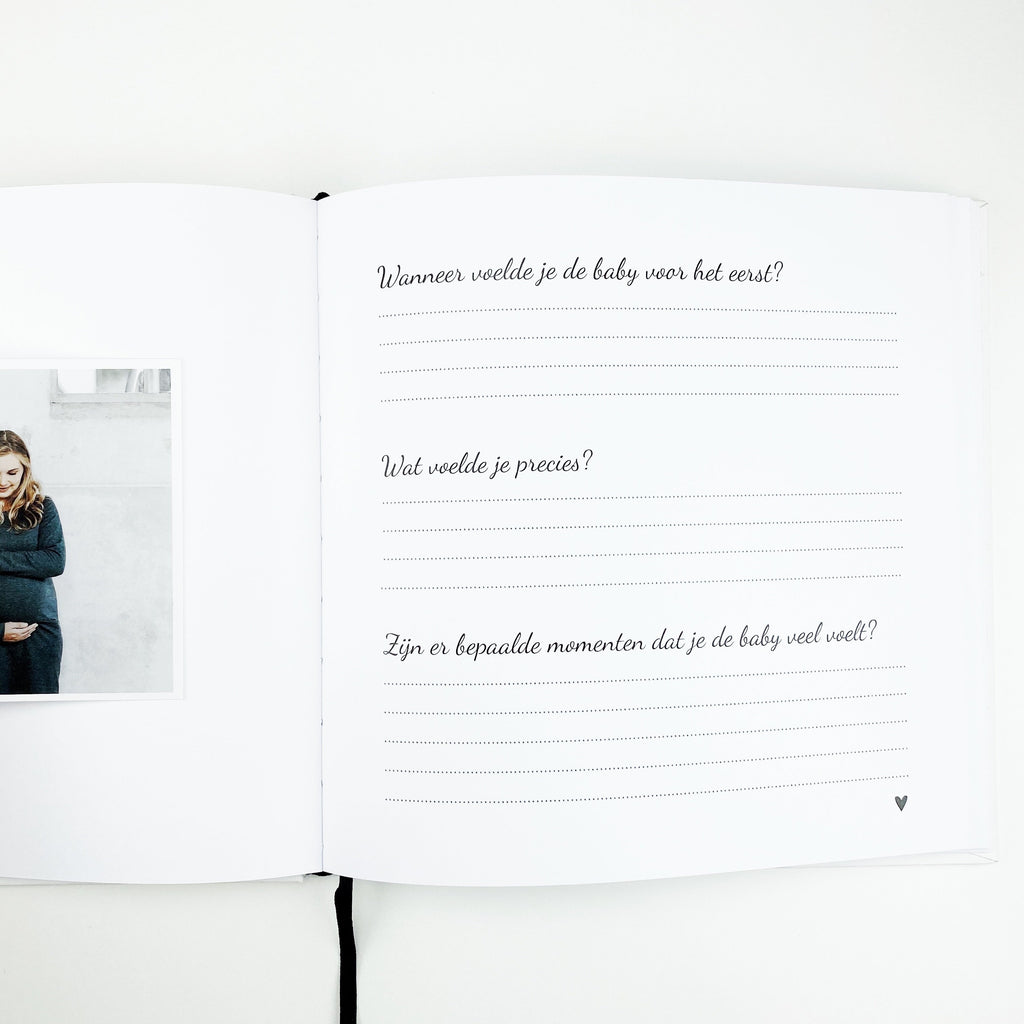 Wanneer voelde je de baby voor het eerst?
Wat voelde je precies?
Zijn er bepaalde momenten dat je de baby veel voelt?